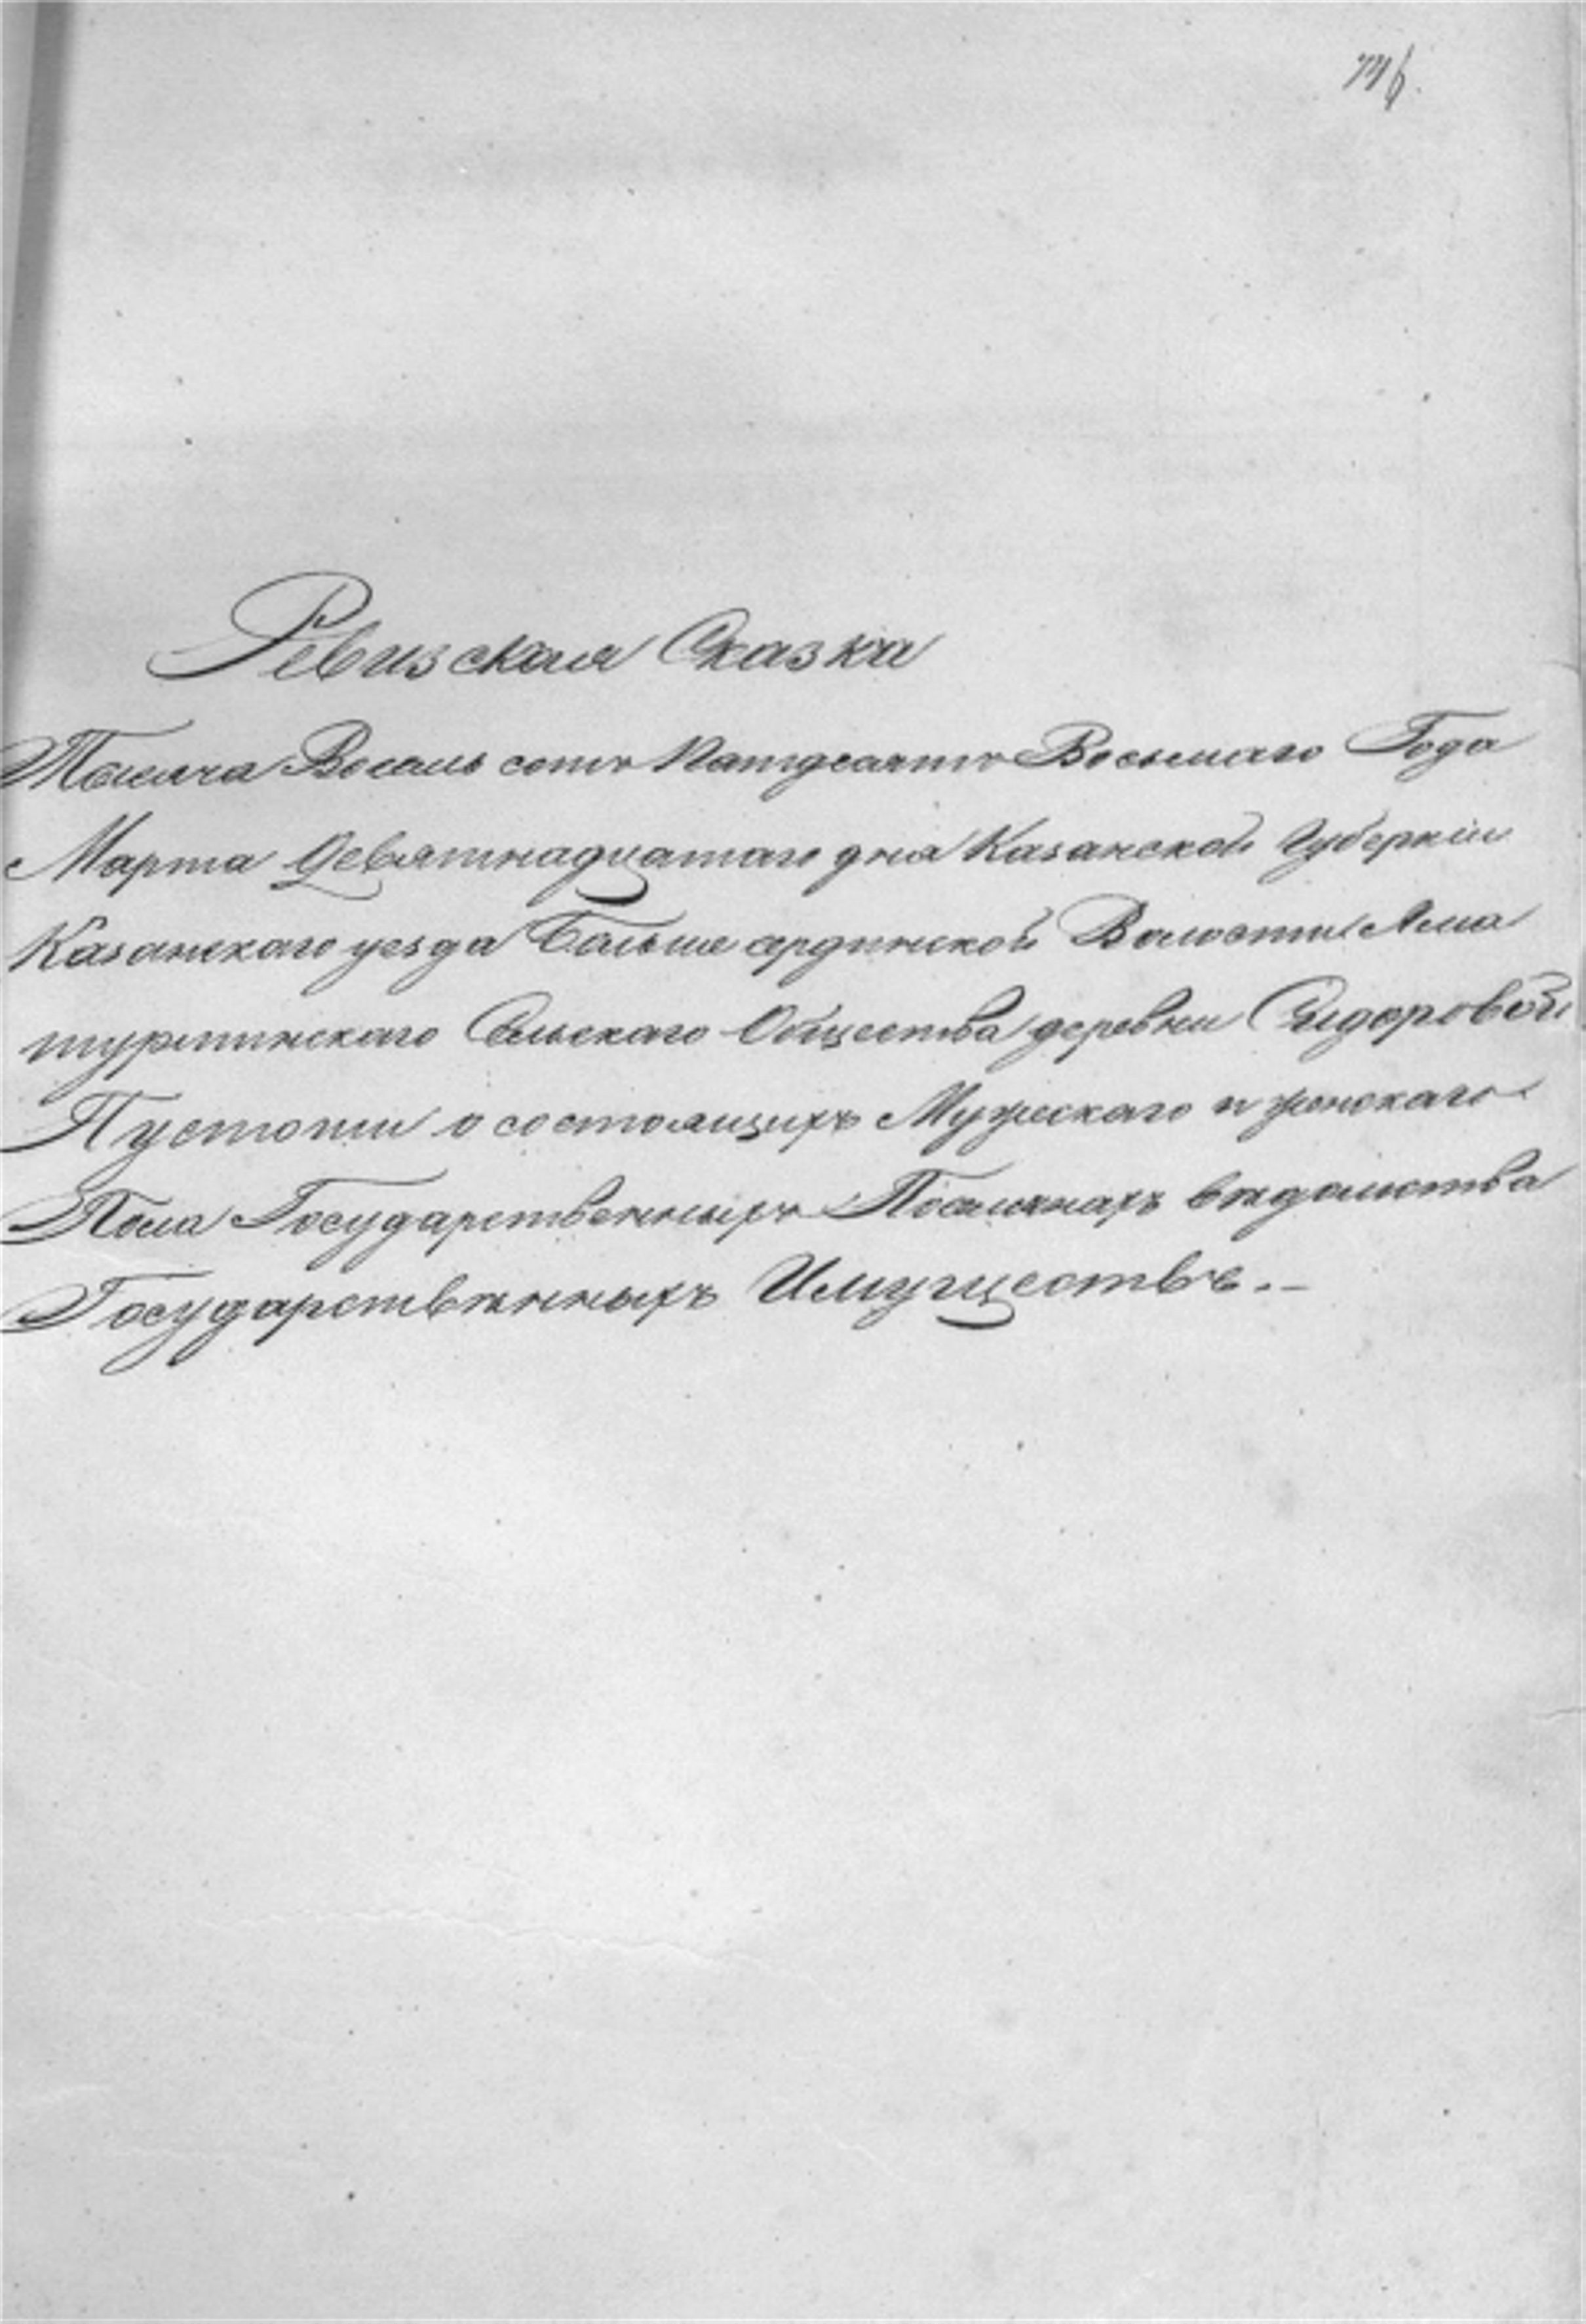 Ревизская Сказка
Тысяча Восемь сотъ Пятдесятъ Восьмаго Года
Марта Девятнадцатаго дня Казанской Губерніи
Казанскаго уезда Больше сердинской Волости
Сельскаго Общества деревни Сидоровой
Пустоши о состоящихъ Мужескаго и женскаго
Пола Государственныхъ Поселянахъ вѣдомства
Государственныхъ Имуществъ.–